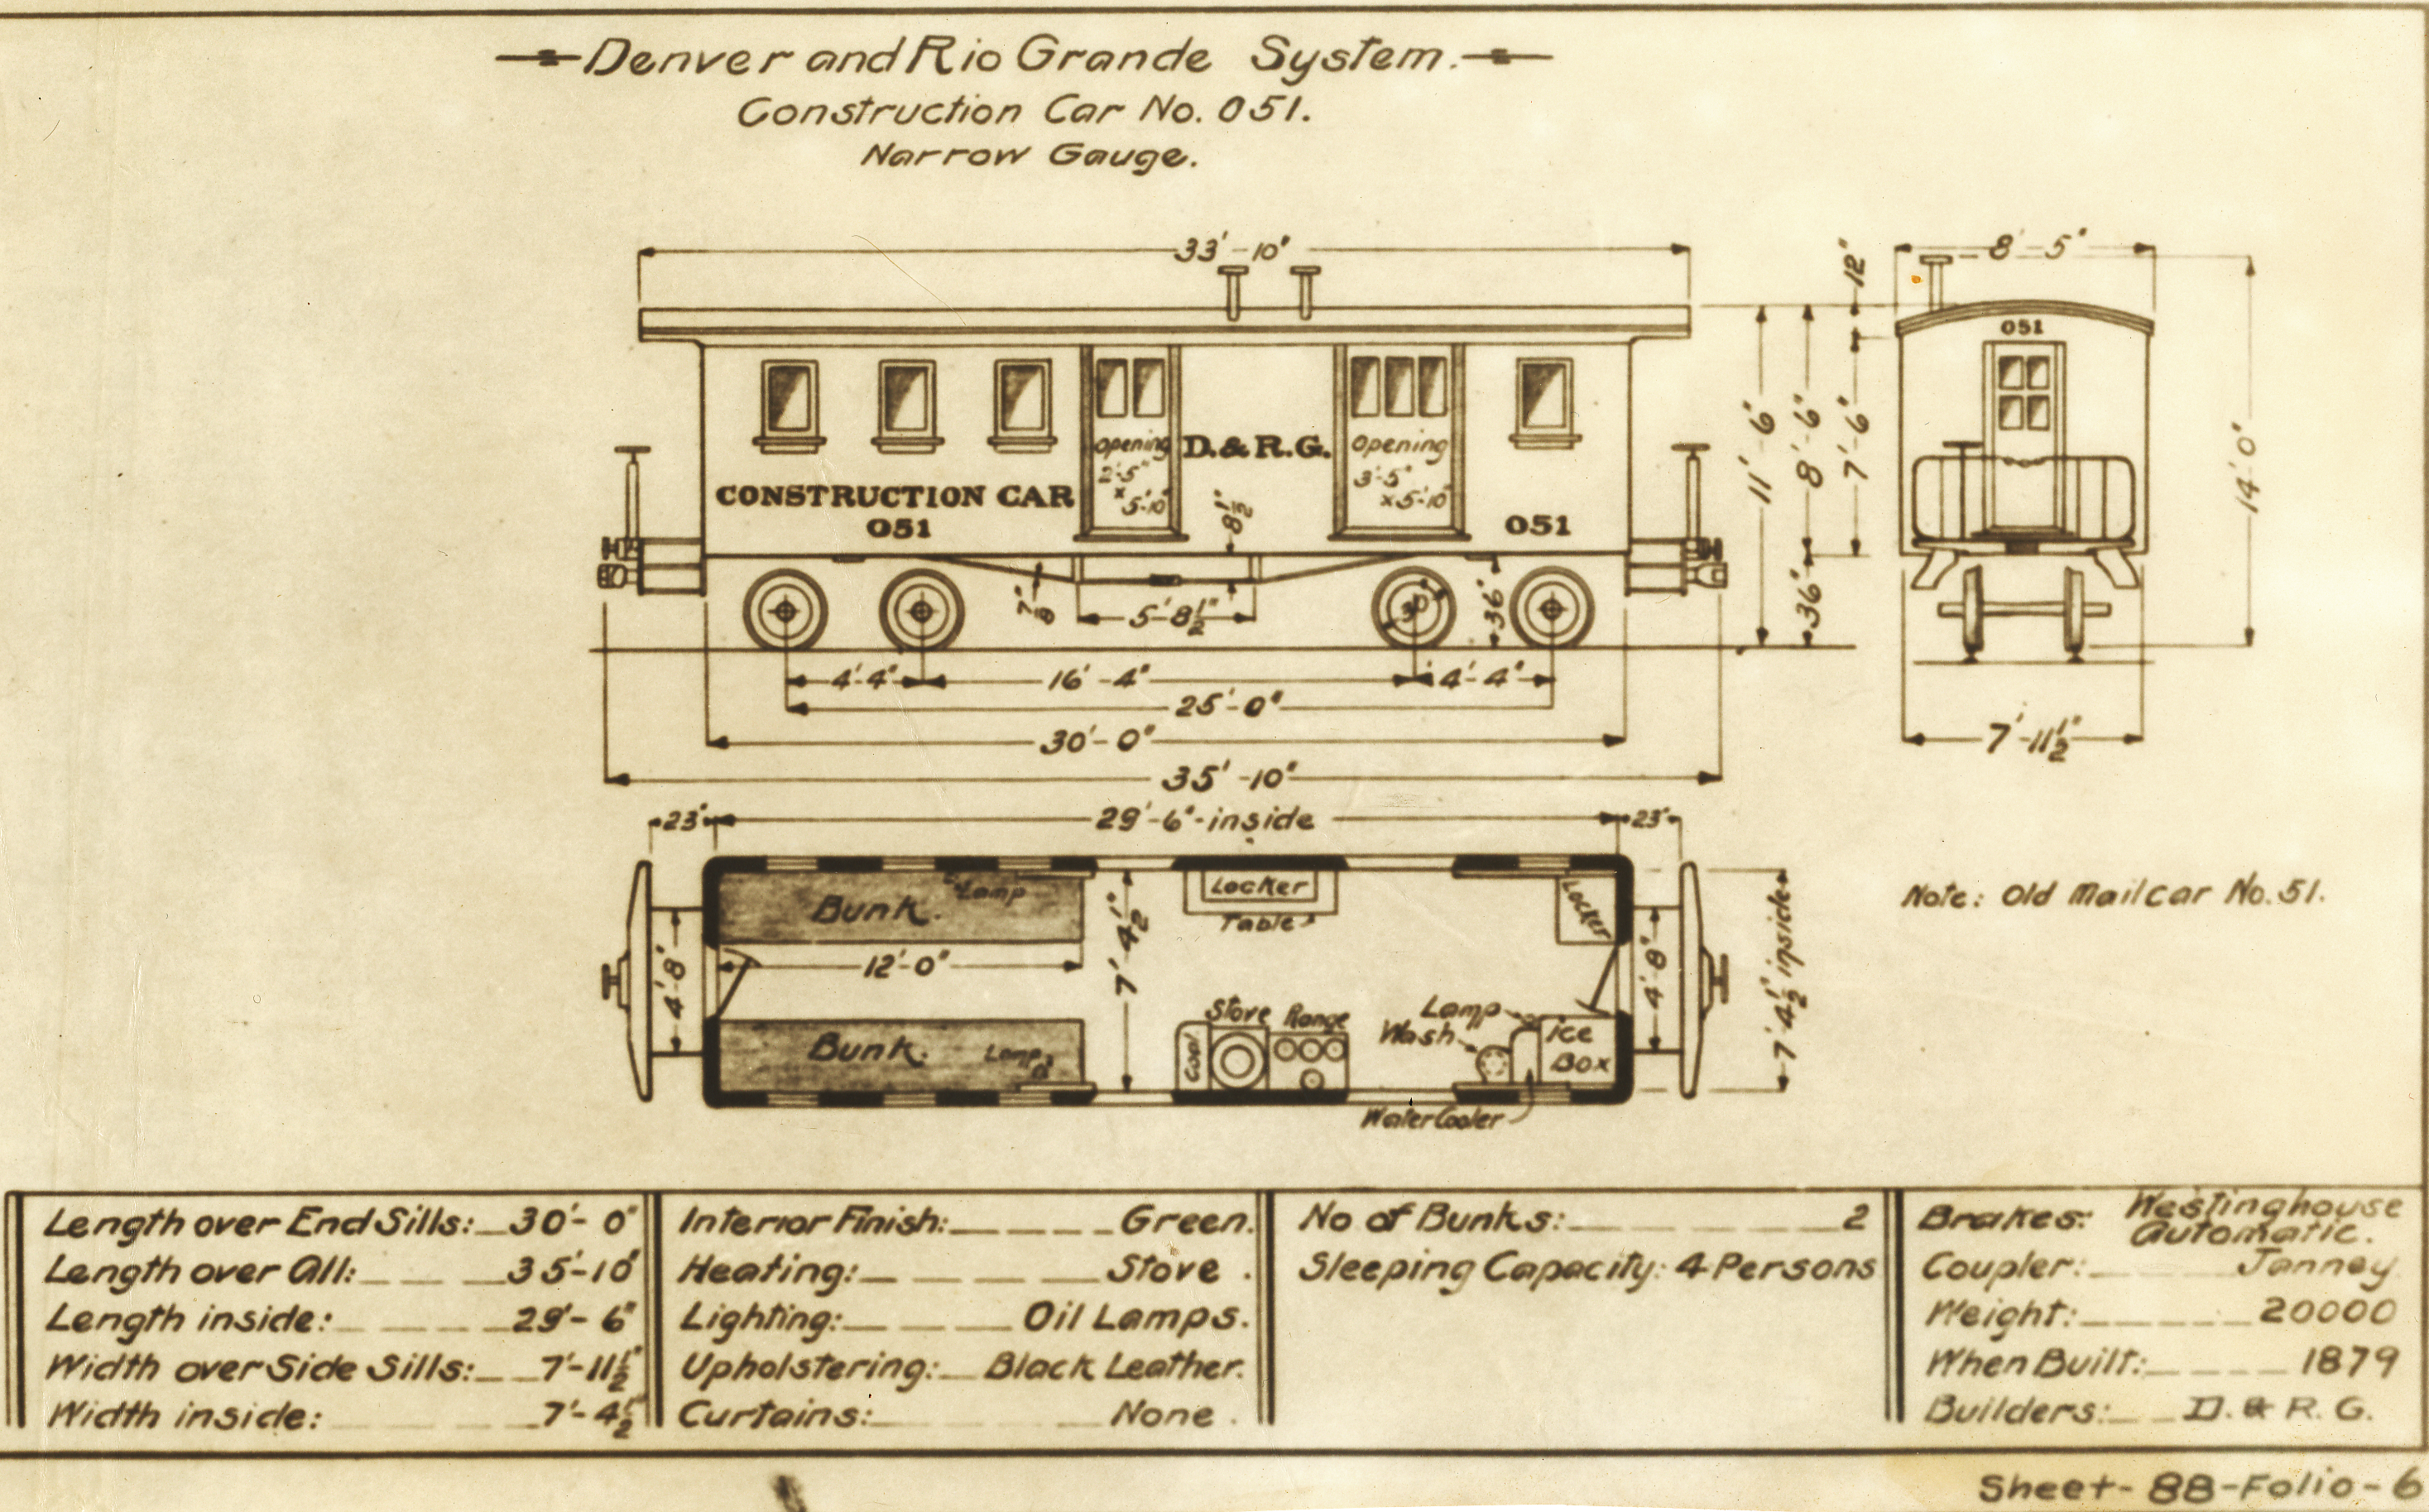 Denver and Rio Grande System.
Construction Car No. 051.
Narrow Gauge.
33'-10"
8'-5"
12"
051
11'-6"
8'-6"
7'-6"
14'-0"
Opening
2'-5"
x
5'-10"
D.&R.G.
Opening
3'-5"
x5'-10"
CONSTRUCTION CAR
051
8½"
051
7/8"
5'-8½"
30"
36"
36"
4'-4"
16'-4"
4'-4"
25'-0"
30'-0"
7'-11½"
35'-10"
23"
29'-6"-inside
23"
Bunk.
Lamp
Locker
Table
Locker
Note: Old Mail car No. 51.
4'-8"
12'-0"
7'-4½"
4'-8"
7'-4½" inside
Bunk.
Lamp
Coal
Stove
Range
Lamp
Wash
Ice
Box
Water Cooler
Length over End Sills: 30'-0"
Length over All: 35'-10"
Length inside: 29'-6"
Width over Side Sills: 7'-11½"
Width inside: 7'-4½"
Interior Finish: Green.
Heating: Stove.
Lighting: Oil Lamps.
Upholstering: Black Leather.
Curtains: None.
No of Bunks: 2
Sleeping Capacity: 4 Persons
Brakes: Westinghouse
Automatic.
Coupler: Janney
Weight: 20000
When Built: 1879
Builders: D. & R. G.
Sheet-88-Folio-6